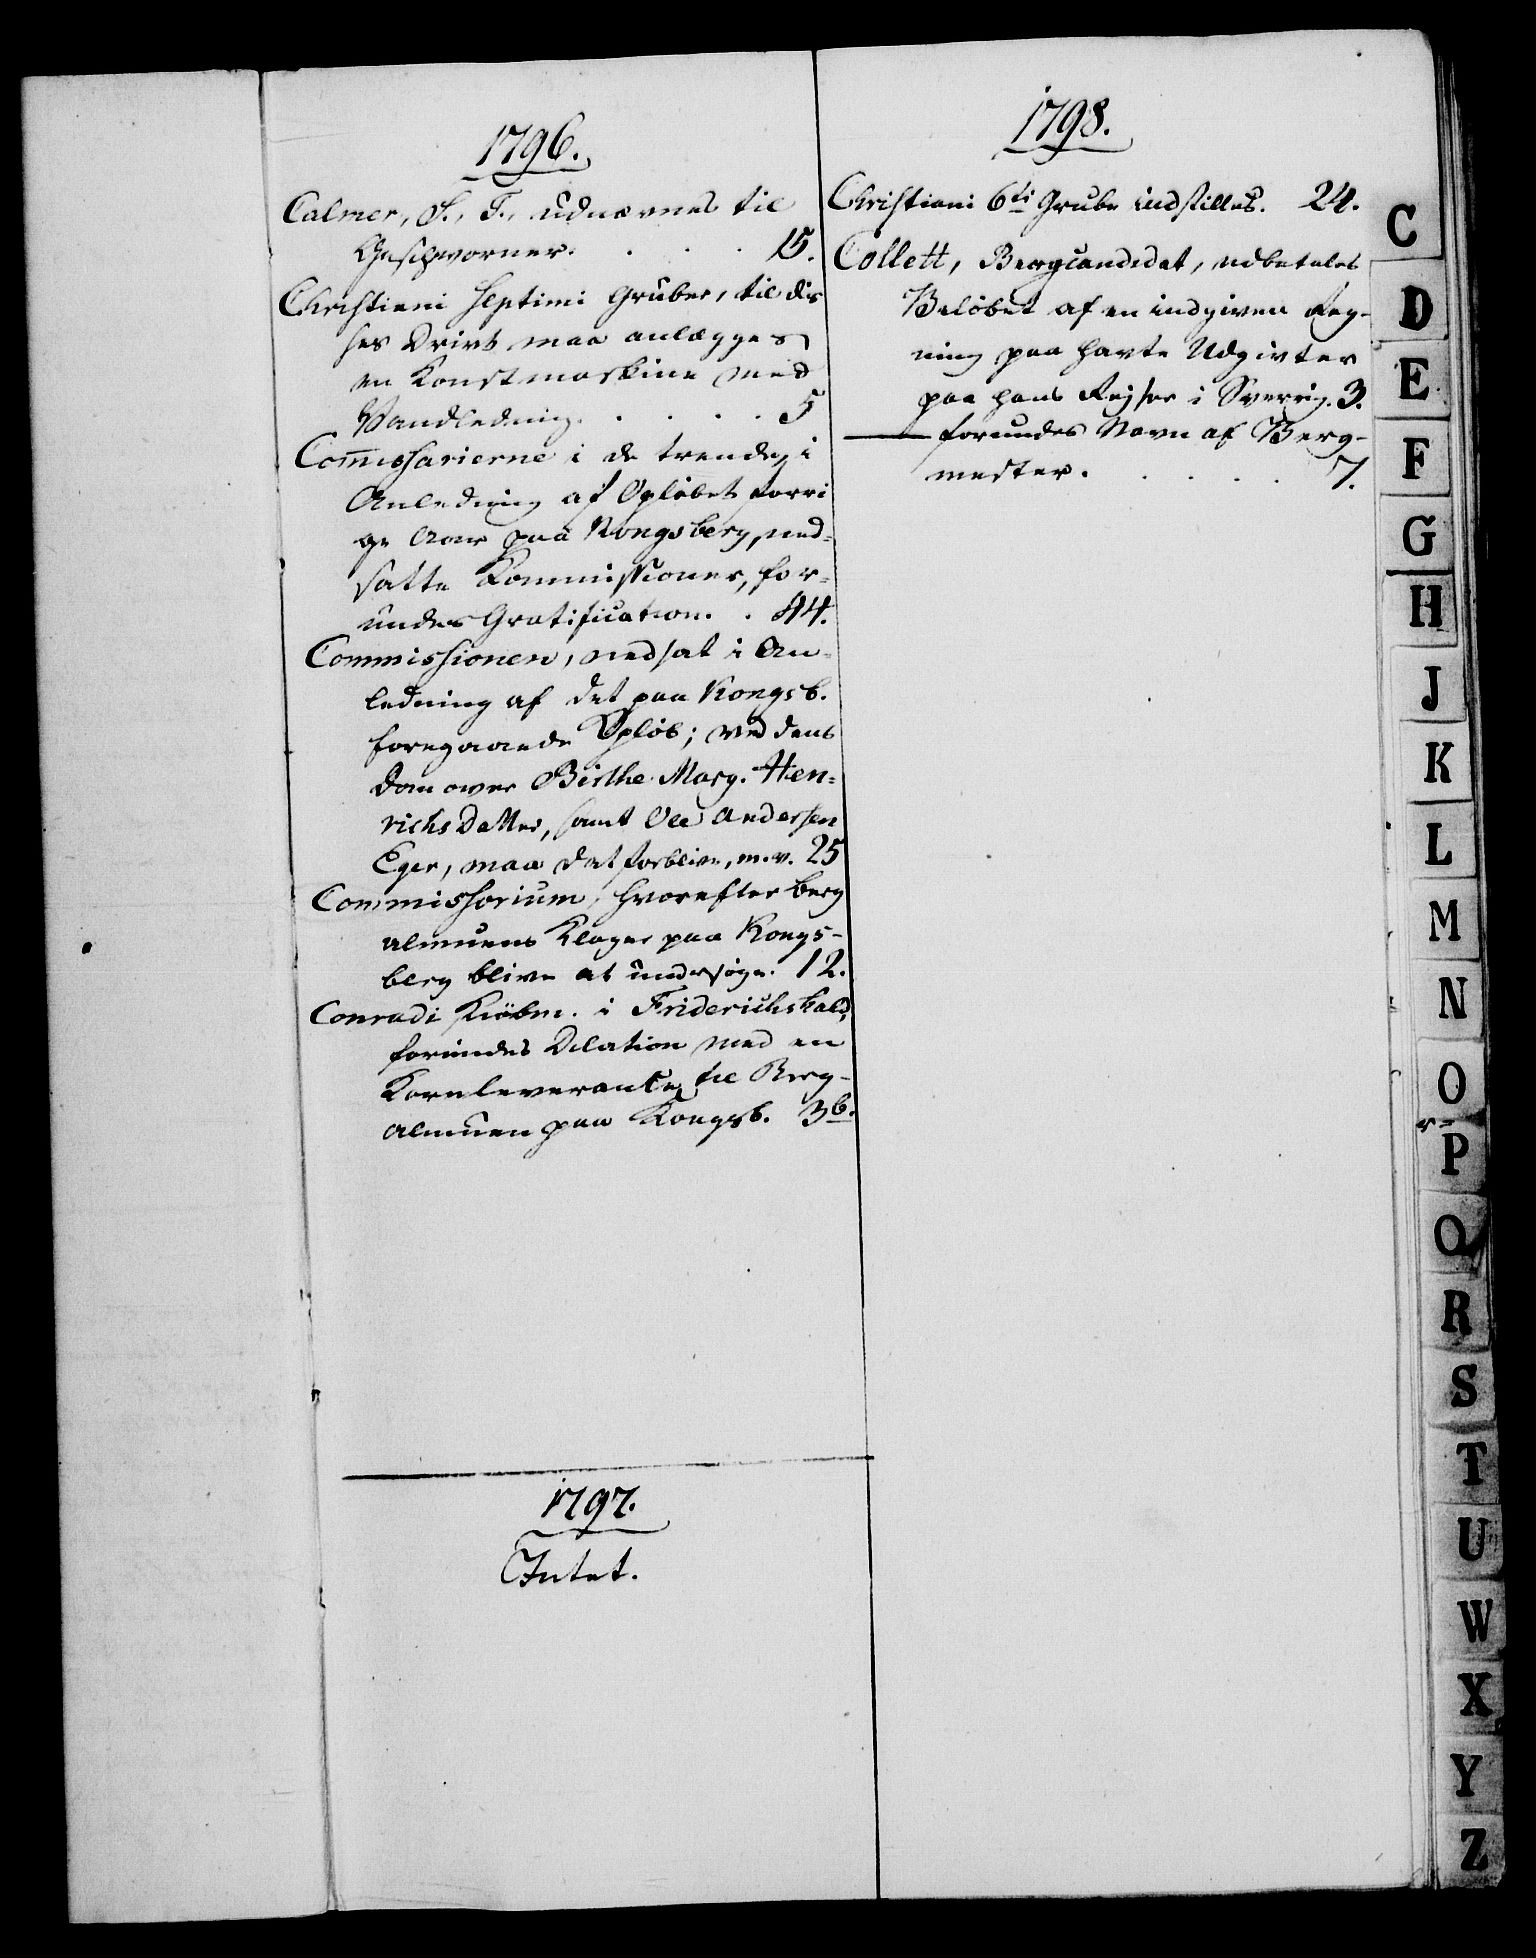 1796.
Calmer, S. F., udnævnes til
Geschworner. . . . 15.
Christiani Septimi Gruber, til dis
ses Drivt maa anlægges
en Konstmaskine med
Vandledning. . . . . 5
Com̅issarierne i de trende, i
Anledning af Opløbet forri
ge Aar paa Kongsberg, ned-
satte Kommissioner, for-
undes Gratification. . 44.
Commissionen, nedsat i An-
ledning af det paa Kongsb.
foregaaende Opløb; ved dens
Dom over Birthe Marg. Hen-
richsDatter, samt Ole Andersen
Eger, maa det forblive, m. v. 25
Commissorium, hvorefter berg
almuens Klager paa Kongs-
berg blive at undersøge. 12.
Conradi Kiöbm. i Friderichshald,
forundes Dilation med en
Kornleverance til Berg-
almuen paa Kongsb. 3b.
1797.
Intet.
1798.
Christiani 6ti Grube indstilles. 24.
Collett, Bergcandidat, udbetales
Beløbet af en indgiven Reg-
ning paa havte Udgivter
paa hans Rejser i Sverrig. 3.
— forundes Navn af Berg-
mester. . . . . 7.
C
D
E
F
G
H
J
K
L
M
N
O
P
Q
R
S
T
U
W
X
Y
Z